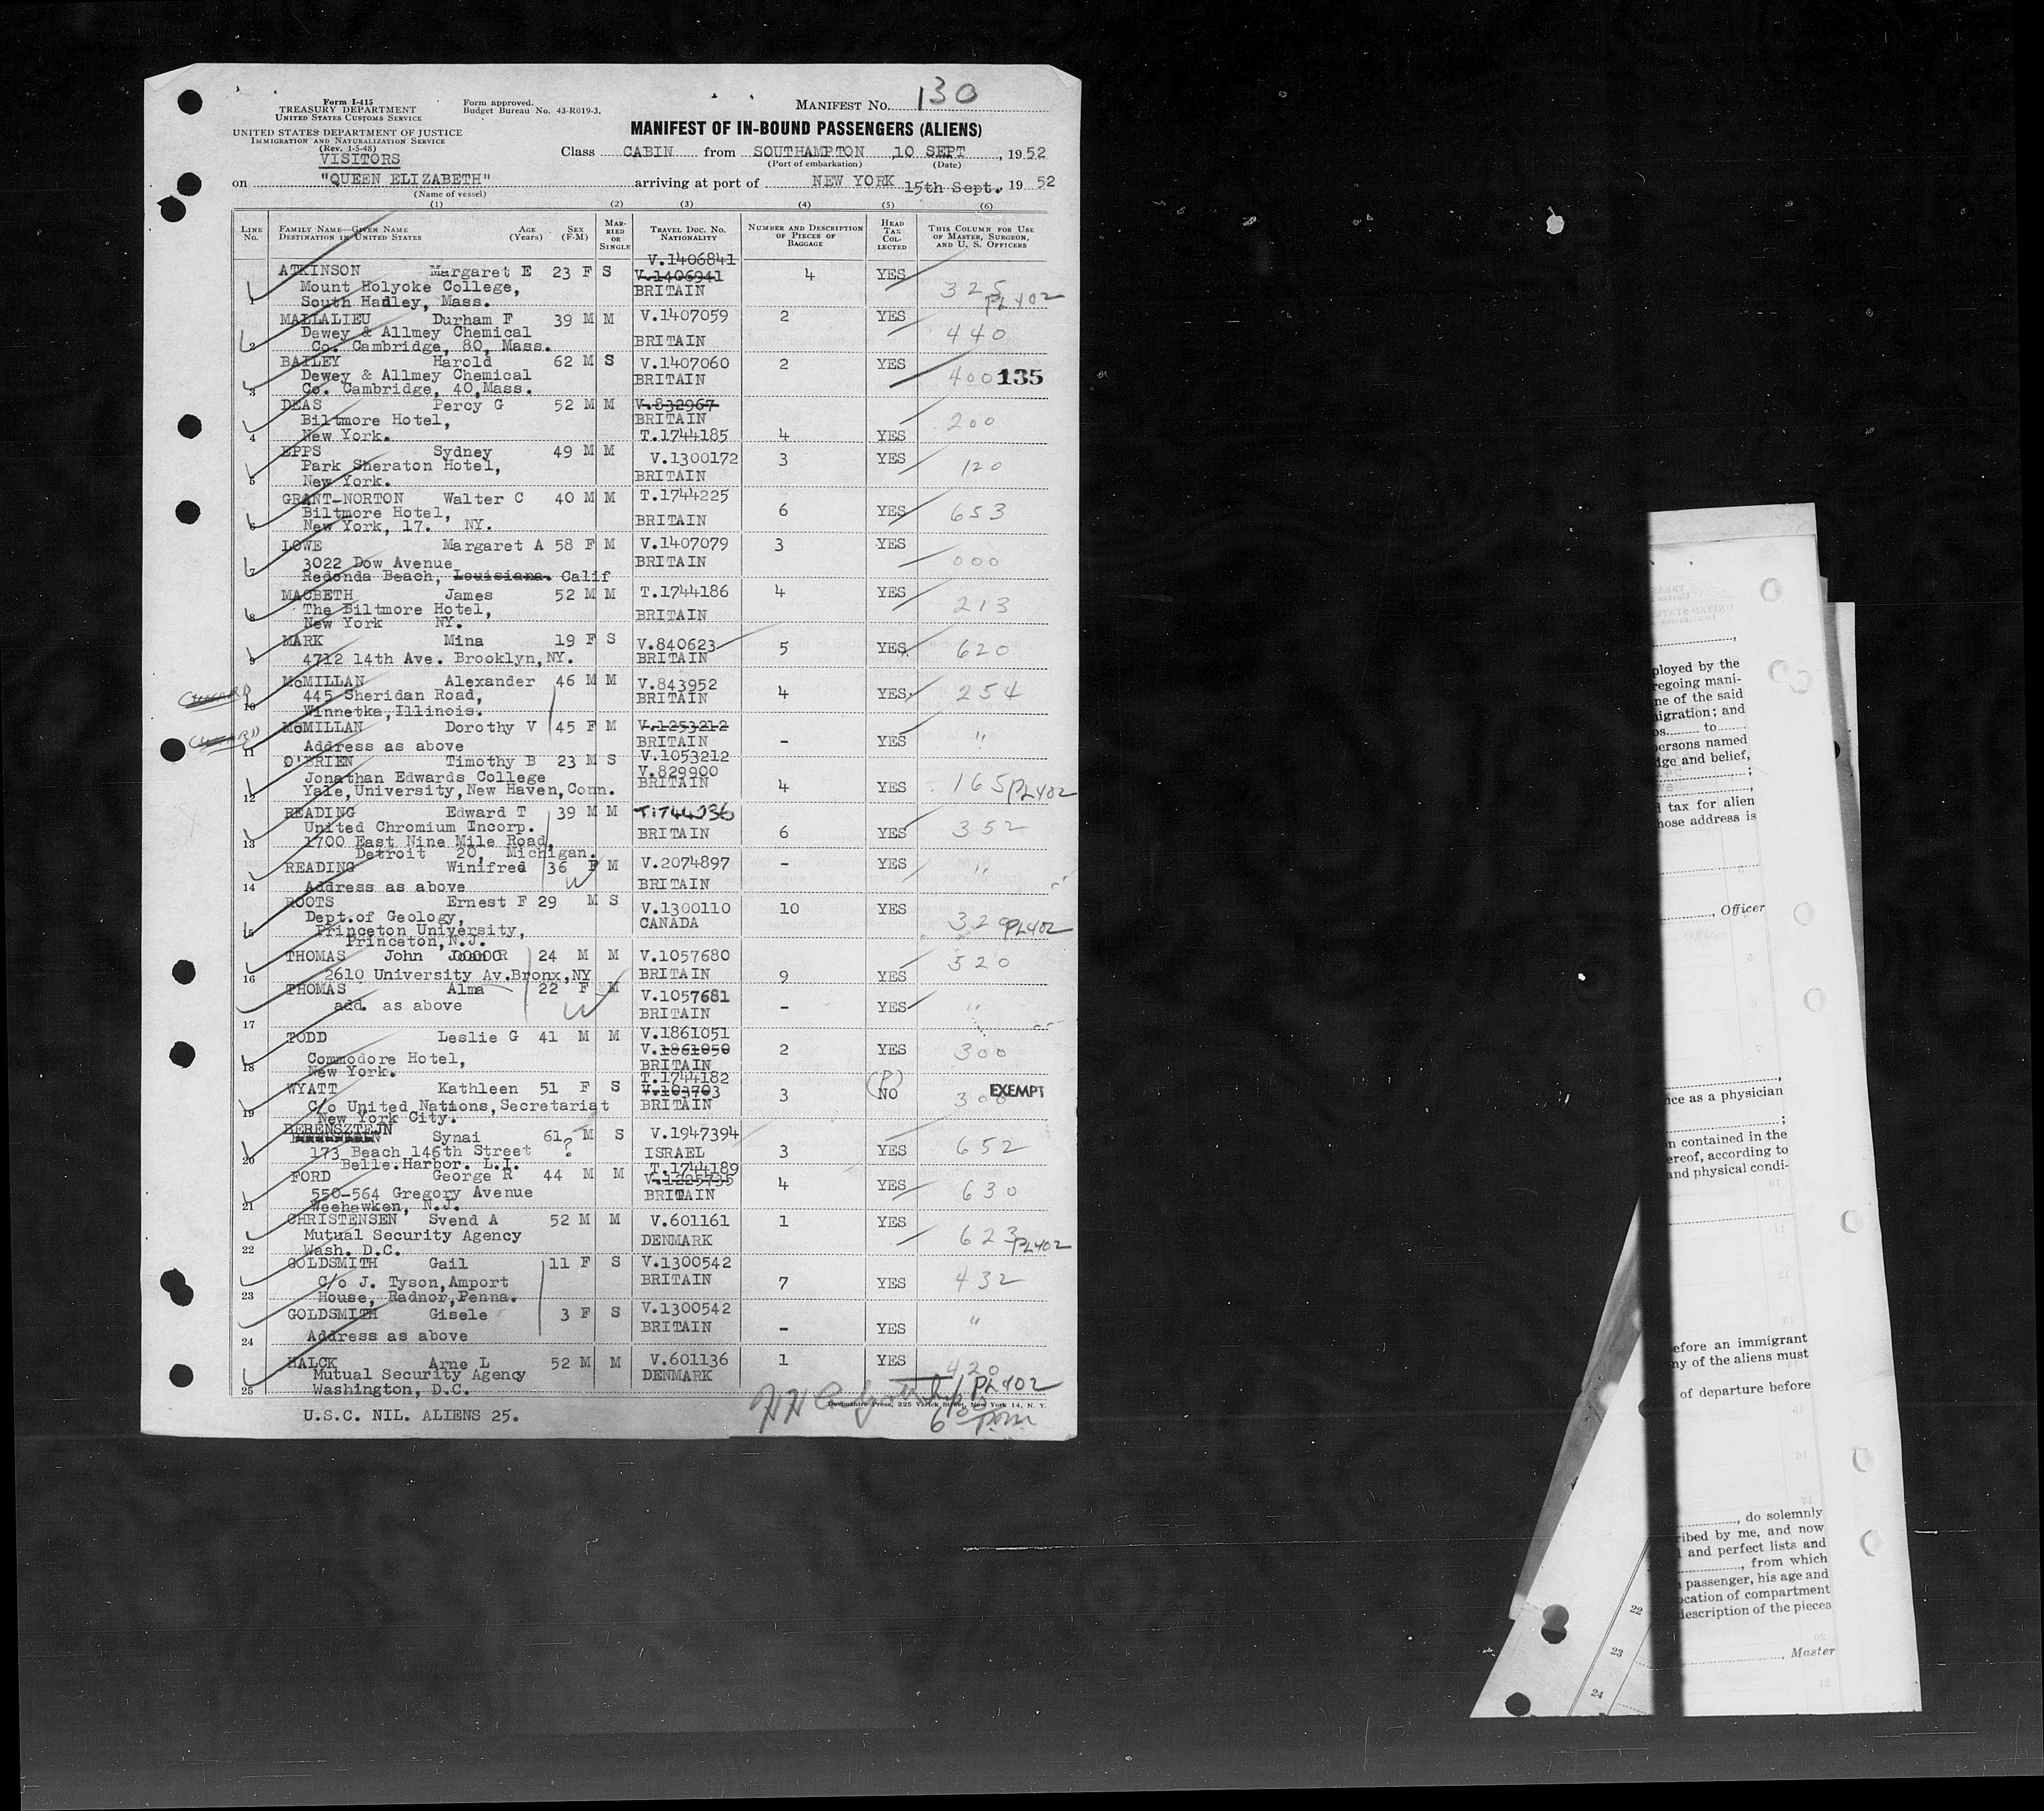 Form I-415
TREASURY DEPARTMENT
UNITED STATES CUSTOMS SERVICE
Form approved.
Budget Bureau No. 43-R019-3.
MANIFEST NO. 130
UNITED STATES DEPARTMENT OF JUSTICE
IMMIGRATION AND NATURALIZATION SERVICE
(Rev. 1-5-48)
VISITORS
MANIFEST OF IN-BOUND PASSENGERS (ALIENS)
Class CABIN from SOUTHAMPTON 10 SEPT , 1952
(Port of embarkation) (Date)
on "QUEEN ELIZABETH" arriving at port of NEW YORK 15th Sept. 19 52
(Name of vessel)
(1) (2) (3) (4) (5) (6)
LINE NO. FAMILY NAME—GIVEN NAME DESTINATION IN UNITED STATES AGE (Years) SEX (F-M) MARRIED OR SINGLE TRAVEL DOC. NO. NATIONALITY NUMBER AND DESCRIPTION OF PIECES OF BAGGAGE HEAD TAX COLLECTED THIS COLUMN FOR USE OF MASTER, SURGEON, AND U. S. OFFICERS
V.1406841
ATKINSON Margaret E 23 F S V.1406941 4 YES
Mount Holyoke College, BRITAIN 325
1 South Hadley, Mass. PL402
MALLALIEU Durham F 39 M M V.1407059 2 YES
Dewey & Allmey Chemical 440
2 Co. Cambridge, 80, Mass. BRITAIN
BAILEY Harold 62 M S V.1407060 2 YES
Dewey & Allmey Chemical BRITAIN 400 135
3 Co. Cambridge, 40, Mass.
DEAS Percy G 52 M M V.832967
Biltmore Hotel, BRITAIN 200
4 New York. T.1744185 4 YES
EPPS Sydney 49 M M V.1300172 3 YES
Park Sheraton Hotel, 120
5 New York. BRITAIN
GRANT-NORTON Walter C 40 M M T.1744225
Biltmore Hotel, 6 YES 653
6 New York, 17. NY. BRITAIN
LOWE Margaret A 58 F M V.1407079 3 YES
3022 Dow Avenue BRITAIN 000
7 Redonda Beach, Louisiana. Calif
MACBETH James 52 M M T.1744186 4 YES
The Biltmore Hotel, 213
8 New York NY. BRITAIN
MARK Mina 19 F S V.840623 5 YES 620
9 4712 14th Ave. Brooklyn, NY. BRITAIN
McMILLAN Alexander 46 M M V.843952
CUNARD 445 Sheridan Road, BRITAIN 4 YES 254
10 Winnetka, Illinois.
McMILLAN Dorothy V 45 F M V.1253212
CUNARD BRITAIN - YES "
11 Address as above V.1053212
O'BRIEN Timothy B 23 M S V.829900
Jonathan Edwards College BRITAIN 4 YES 165 PL402
12 Yale, University, New Haven, Conn.
READING Edward T 39 M M T.1744036
United Chromium Incorp. BRITAIN 6 YES 352
13 1700 East Nine Mile Road,
Detroit 20, Michigan.
READING Winifred 36 F M V.2074897 - YES "
14 Address as above BRITAIN
ROOTS Ernest F 29 M S V.1300110 10 YES
Dept. of Geology, CANADA 320 PL402
15 Princeton University,
Princeton, N.J.
THOMAS John R 24 M M V.1057680 520
16 2610 University Av. Bronx, NY BRITAIN 9 YES
THOMAS Alma 22 F M V.1057681
add. as above BRITAIN - YES "
17
TODD Leslie G 41 M M V.1861051
V.1861050 2 YES 300
Commodore Hotel, BRITAIN
18 New York.
T.1744182 (P)
WYATT Kathleen 51 F S V.103703 3 NO EXEMPT
C/o United Nations, Secretariat BRITAIN 300
19 New York City.
BERENSZTEJN
Synai 61? M S V.1947394
20 173 Beach 146th Street ISRAEL 3 YES 652
Belle.Harbor. L.I.
FORD George R 44 M M T.1744189
V.1225735 4 YES
550-564 Gregory Avenue BRITAIN 630
21 Weehawken, N.J.
CHRISTENSEN Svend A 52 M M V.601161 1 YES
Mutual Security Agency DENMARK 623 PL402
22 Wash. D.C.
GOLDSMITH Gail 11 F S V.1300542
C/o J. Tyson, Amport BRITAIN 7 YES 432
23 House, Radnor, Penna.
GOLDSMITH Gisele 3 F S V.1300542
BRITAIN - YES "
24 Address as above
HALCK Arne L 52 M M V.601136 1 YES 420
Mutual Security Agency DENMARK
25 Washington, D.C. PL402
Devonshire Press, 225 Varick Street, New York 14, N. Y.
U.S.C. NIL. ALIENS 25.
6 30 p.m.
ployed by the
regoing mani-
ne of the said
igration; and
os to
persons named
dge and belief,
;
d tax for alien
hose address is
, Officer
nce as a physician
;
n contained in the
ereof, according to
and physical condi-
efore an immigrant
ny of the aliens must
of departure before
, do solemnly
ribed by me, and now
l and perfect lists and
, from which
passenger, his age and
ocation of compartment
description of the pieces
22
23
, Master
24